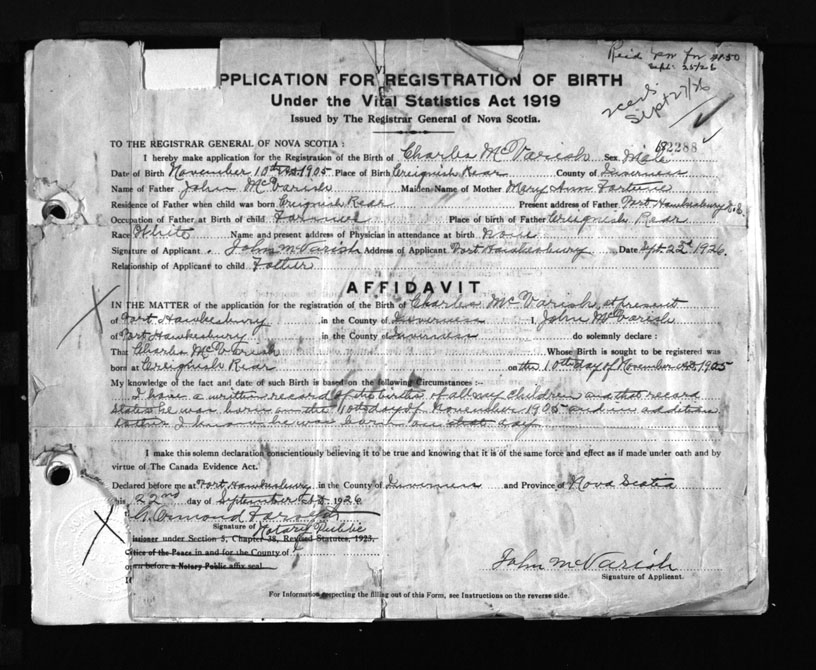 Sept. 25/26
Sept 27/26
PPLICATION FOR REGISTRATION OF BIRTH
Under the Vital Statistics Act 1919
Issued by The Registrar General of Nova Scotia.
TO THE REGISTRAR GENERAL OF NOVA SCOTIA :
2288
I hereby make application for the Registration of the Birth of Charles McVarish Sex Male
Date of Birth November 10th 1905 Place of Birth Creignish Rear County of Inverness
Name of Father John McVarish Maiden Name of Mother Mary Ann Fortune
Residence of Father when child was born Creignish Rear Present address of Father Port Hawkesbury
Occupation of Father at Birth of child Farmer Place of birth of Father Creignish Rear
Race White Name and present address of Physician in attendance at birth None
Signature of Applicant John McVarish Address of Applicant Port Hawkesbury Date Sept. 22d 1926.
Relationship of Applicant to child Father
AFFIDAVIT
IN THE MATTER of the application for the registration of the Birth of Charles McVarish, at present
of Port Hawkesbury in the County of Inverness I, John McVarish
of Port Hawkesbury in the County of Inverness do solemnly declare :
That Charles McVarish Whose Birth is sought to be registered was
born at Creignish Rear on the 10th day of November 1905
My knowledge of the fact and date of such Birth is based on the following Circumstances :--
I have a written record of the births of all my children and that record
states he was born on the 10th day of November 1905 and in addition
I know he was born on that day
I make this solemn declaration conscientiously believing it to be true and knowing that it is of the same force and effect as if made under oath and by
virtue of The Canada Evidence Act.
Declared before me at Port Hawkesbury in the County of Inverness and Province of Nova Scotia
his 22nd day of September A.D. 1926
Signature of Notary Public
issioner under Section 5, Chapter 38, Revised Statutes, 1923.
tice of the Peace in and for the County of
rn before a Notary Public affix seal.
John McVarish
Signature of Applicant.
For Information respecting the filling out of this Form, see Instructions on the reverse side.